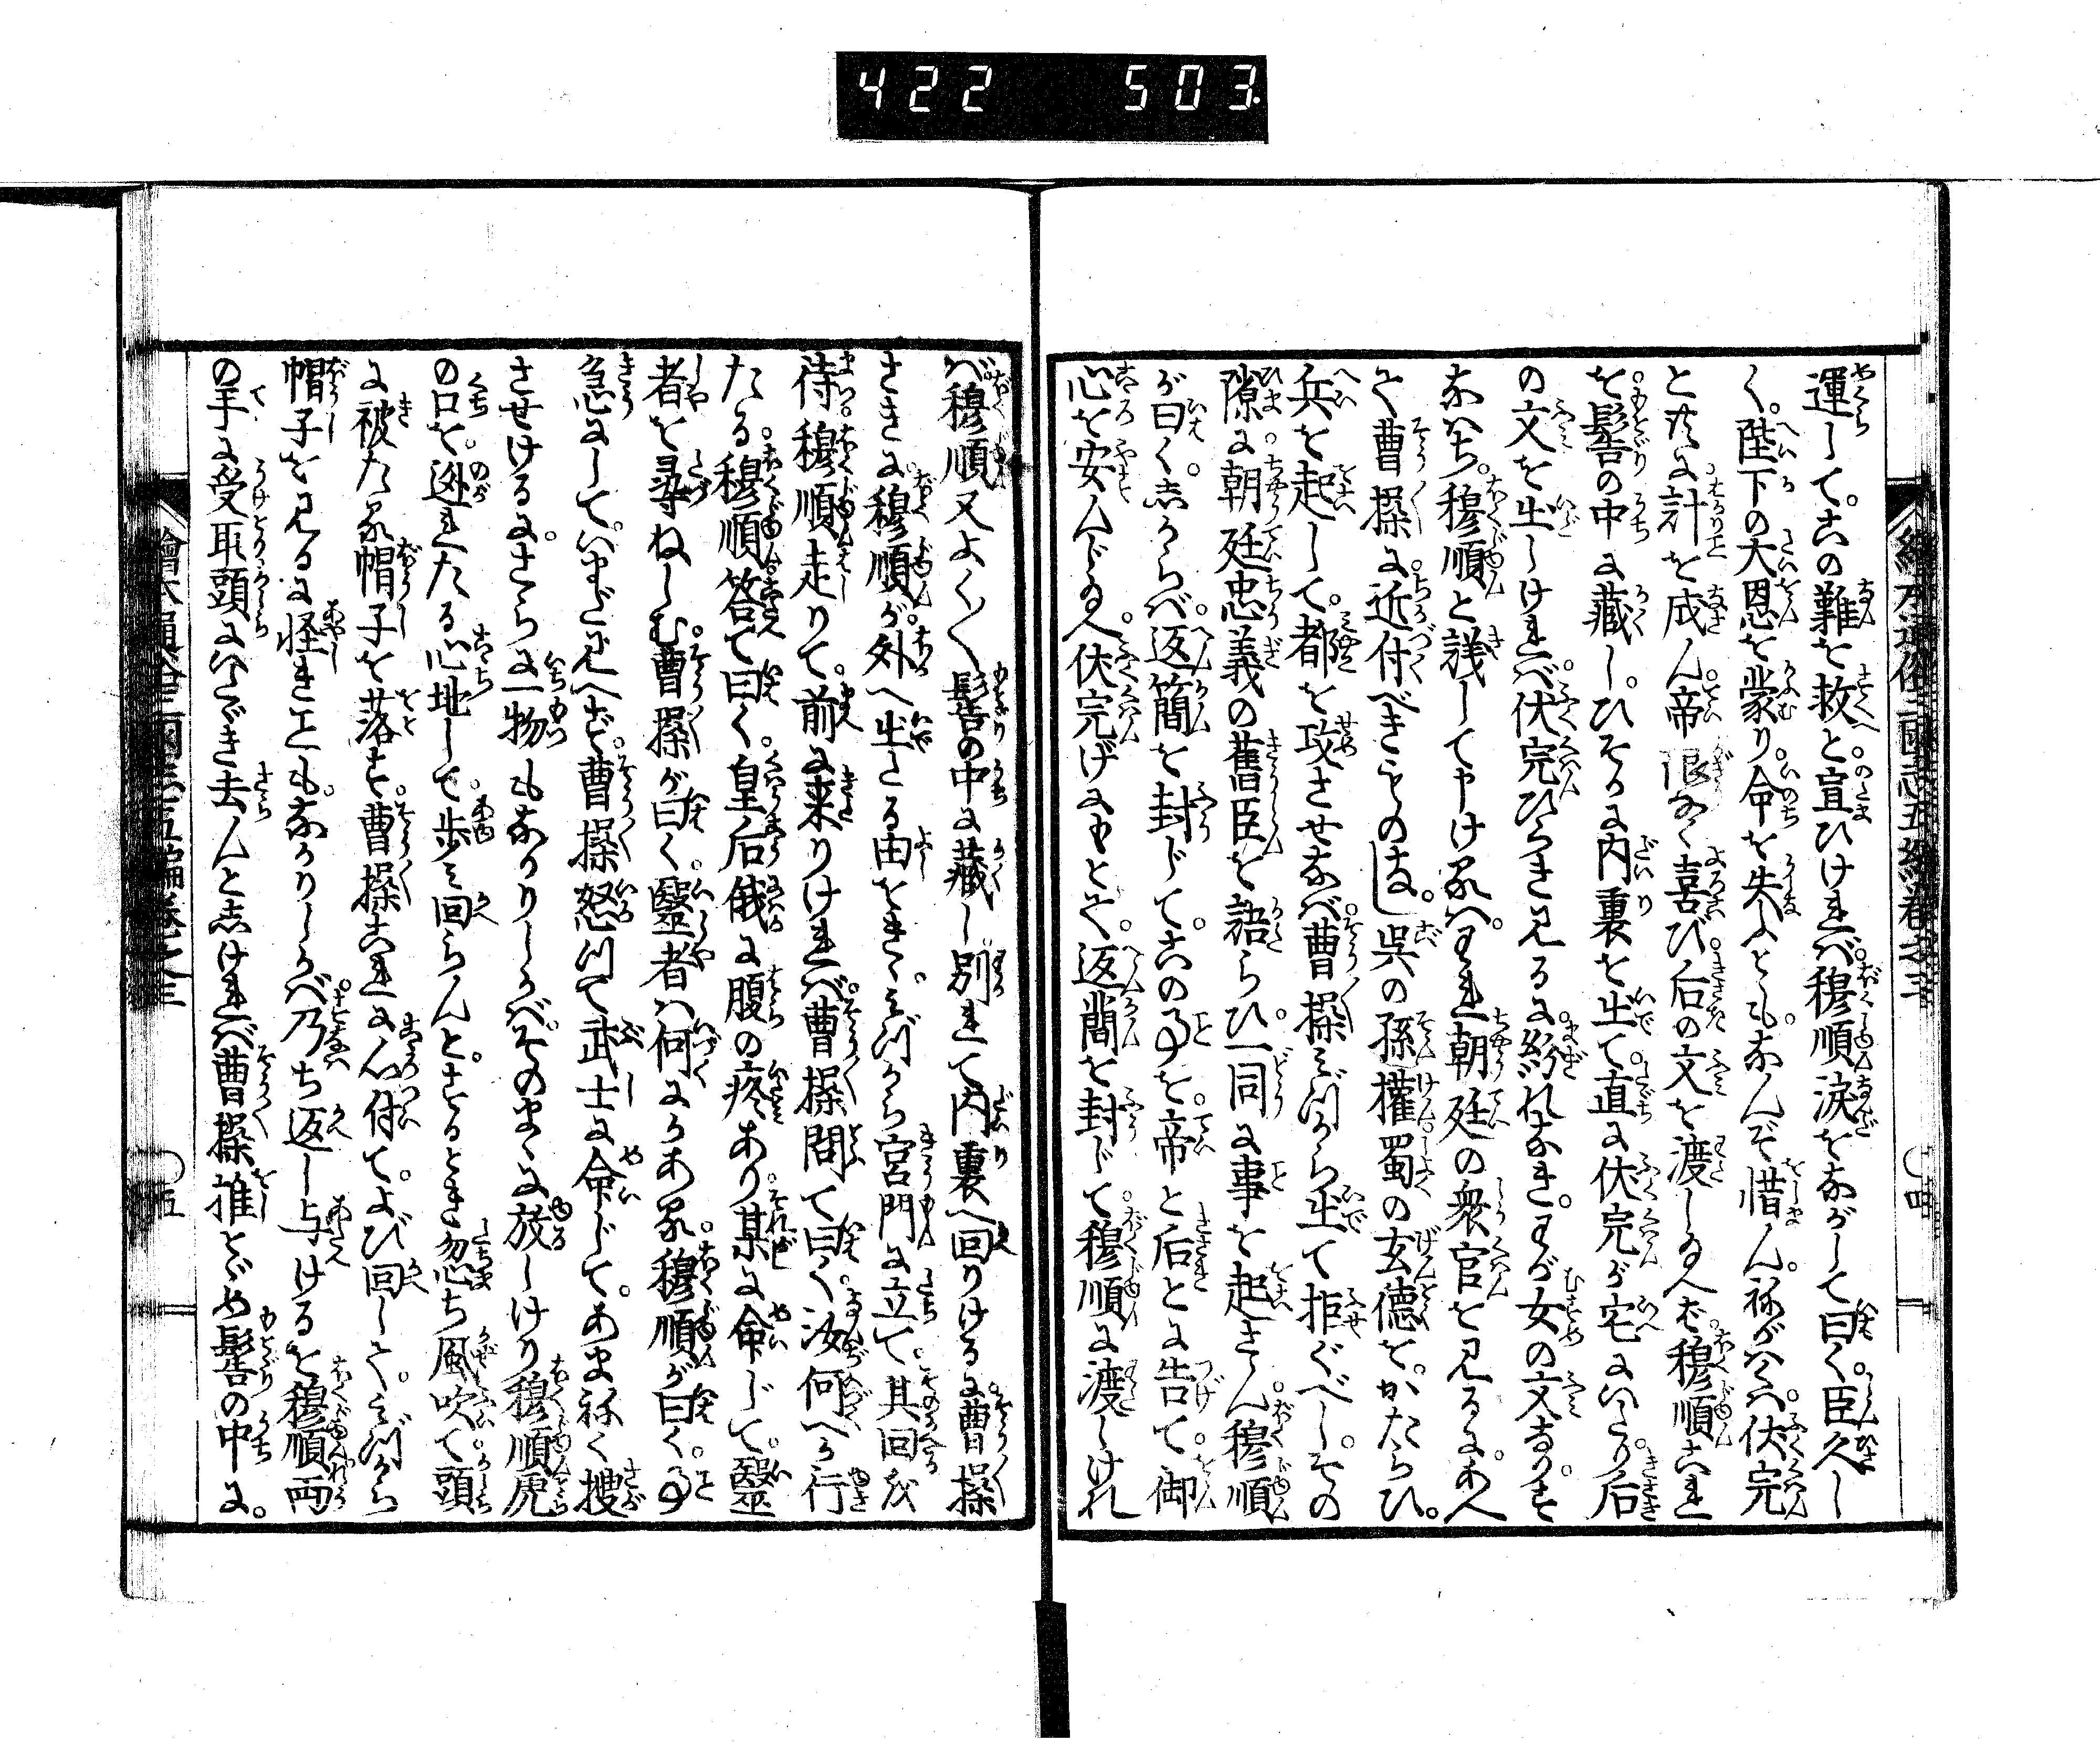 422 503
繪本通俗三國志五編巻之三
運して。この難を救へと。宣ひければ。穆順涙をながして曰く。臣久し
く。陛下の大恩を蒙り。命を失ふとも。なんぞ惜ん。ねがはくは。伏完
と共に計を成ん。帝限りなく喜び。后の文を渡し給へば。穆順これ
を髻の中に藏し。ひそかに内裏を出て。直に伏完が宅にいたり。后
の文を出しければ。伏完ひらき見るに。紛れなき。わが女の文なり。す
なはち。穆順と議して申けるは。われ朝廷の衆官を見るに。あへ
て曹操に近付べきものなし。呉の孫權蜀の玄德を。かたらひ。
兵を起して。都を攻させなば。曹操みづから出て拒ぐべし。その
隙に朝廷忠義の舊臣を語らひ。一同に事を起さん。穆順
が曰く。しからば。返簡を封じて。この事を。帝と后とに告て。御
心を安んじ給へ。伏完げにもとて。返簡を封じて。穆順に渡しけれ
四
ば。穆順又よく〱髻の中に藏し別れて。内裏へ回りけるに。曹操
さきに。穆順が。外へ出たる由をきゝ。みづから宮門に立て。其回を
待。穆順走りて。前に来りければ。曹操問て曰く。汝何へか行
たる。穆順答て曰く。皇后俄に腹の疼あり。某に命じて。醫
者を尋ねしむ。曹操が曰く。醫者は何にかある。穆順が曰く。事
急にして。いまだ見へず。曹操怒つて武士に命じて。あまねく搜
させけるに。さらに一物もなかりしかば。そのまゝに放しけり。穆順虎
の口を。逃れたる心地して。歩み回らんと。するとき忽ち風吹て。頭
に被たる帽子を落す。曹操これに心付て。よび回して。みづから
帽子を見るに怪きこともなかりしかば。乃ち返し与けるを。穆順両
の手に受取頭にいたゞき去んとしければ曹操推とゞめ髻の中に。
五